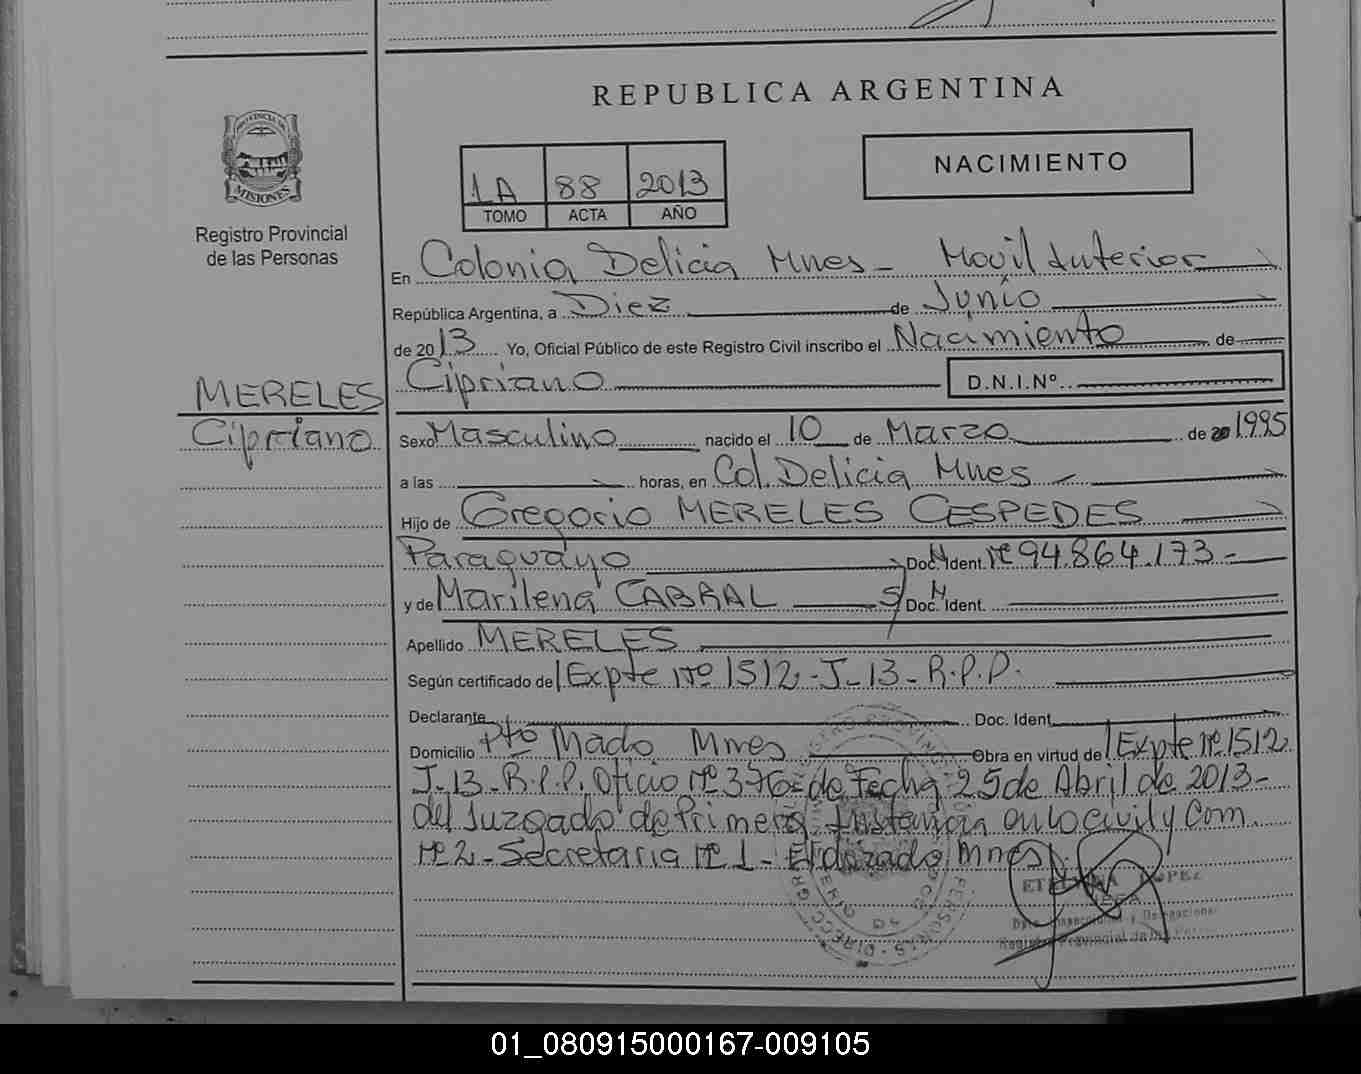 REPUBLICA ARGENTINA
PROVINCIA DE
MISIONES
Registro Provincial
de las Personas
1A 88 2013
TOMO ACTA AÑO
NACIMIENTO
En Colonia Delicia Mnes - Movil Interior
República Argentina, a Diez de Junio
de 2013 Yo, Oficial Público de este Registro Civil inscribo el Nacimiento de
Cipriano D.N.I.Nº
MERELES
Cipriano
Sexo Masculino nacido el 10 de Marzo de 20 1995
a las horas, en Col. Delicia Mnes
Hijo de Gregorio MERELES CESPEDES
Paraguayo Doc. Ident. Nº 94.864.173-
y de Marilena CABRAL Doc. Ident.
Apellido MERELES
Según certificado de Expte Nº 1512-J-13-R.P.P.
Declarante Doc. Ident
Domicilio Pto Mado Mnes Obra en virtud de Expte Nº 1512
J-13-R.P.P. Oficio Nº 376- de Fecha 25 de Abril de 2013-
del Juzgado de Primera Instancia en lo civil y Com.
Nº 2 - Secretaria Nº 1 - Eldorado Mnes.
LOPEZ
Registro Provincial de las
01_080915000167-009105